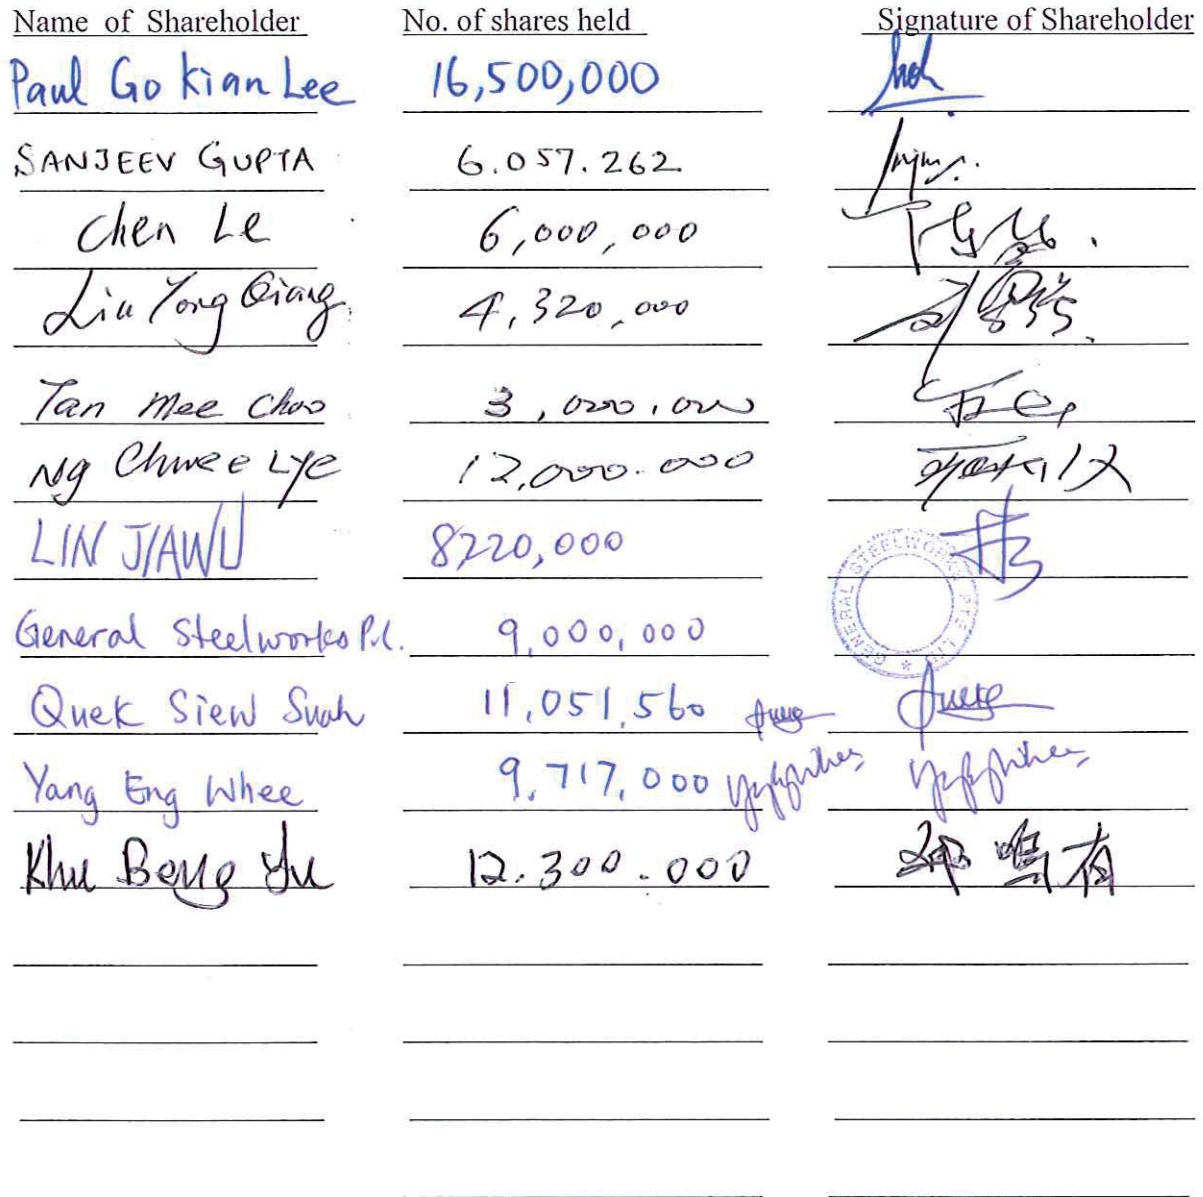 Name of Shareholder No. of shares held Signature of Shareholder
Paul Go Kian Lee 16,500,000
SANJEEV GUPTA 6.057.262
Chen Le 6,000,000
Liu Yong Qiang 4,320,000
Tan Mee Choo 3,000,000
Ng Chwee Lye 12,000.000
LIN JIAWU 8220,000
GENERAL STEELWORKS PTE LTD
General Steelworks P.L. 9,000,000
Quek Siew Suah 11,051,560
Yang Eng Whee 9,717,000
Khu Beng Yu 12.300.000 邱鸣有